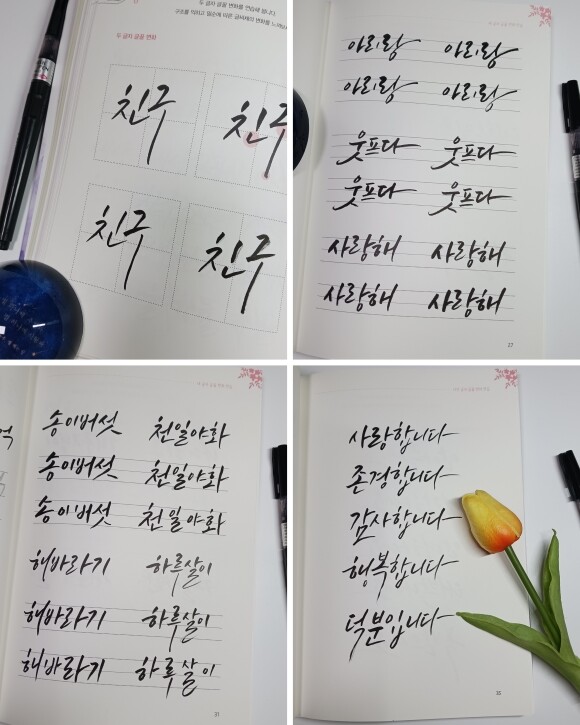 연습해 봅니다.
두 글자 글꼴 변화
친구 친구
친구 친구
아리랑 아리랑
아리랑 아리랑
웃프다 웃프다
웃프다 웃프다
사랑해 사랑해
사랑해 사랑해
27
송이버섯 천일야화
송이버섯 천일야화
송이버섯 천일야화
해바라기 하루살이
해바라기 하루살이
해바라기 하루살이
31
사랑합니다
존경합니다
감사합니다
행복합니다
덕분입니다